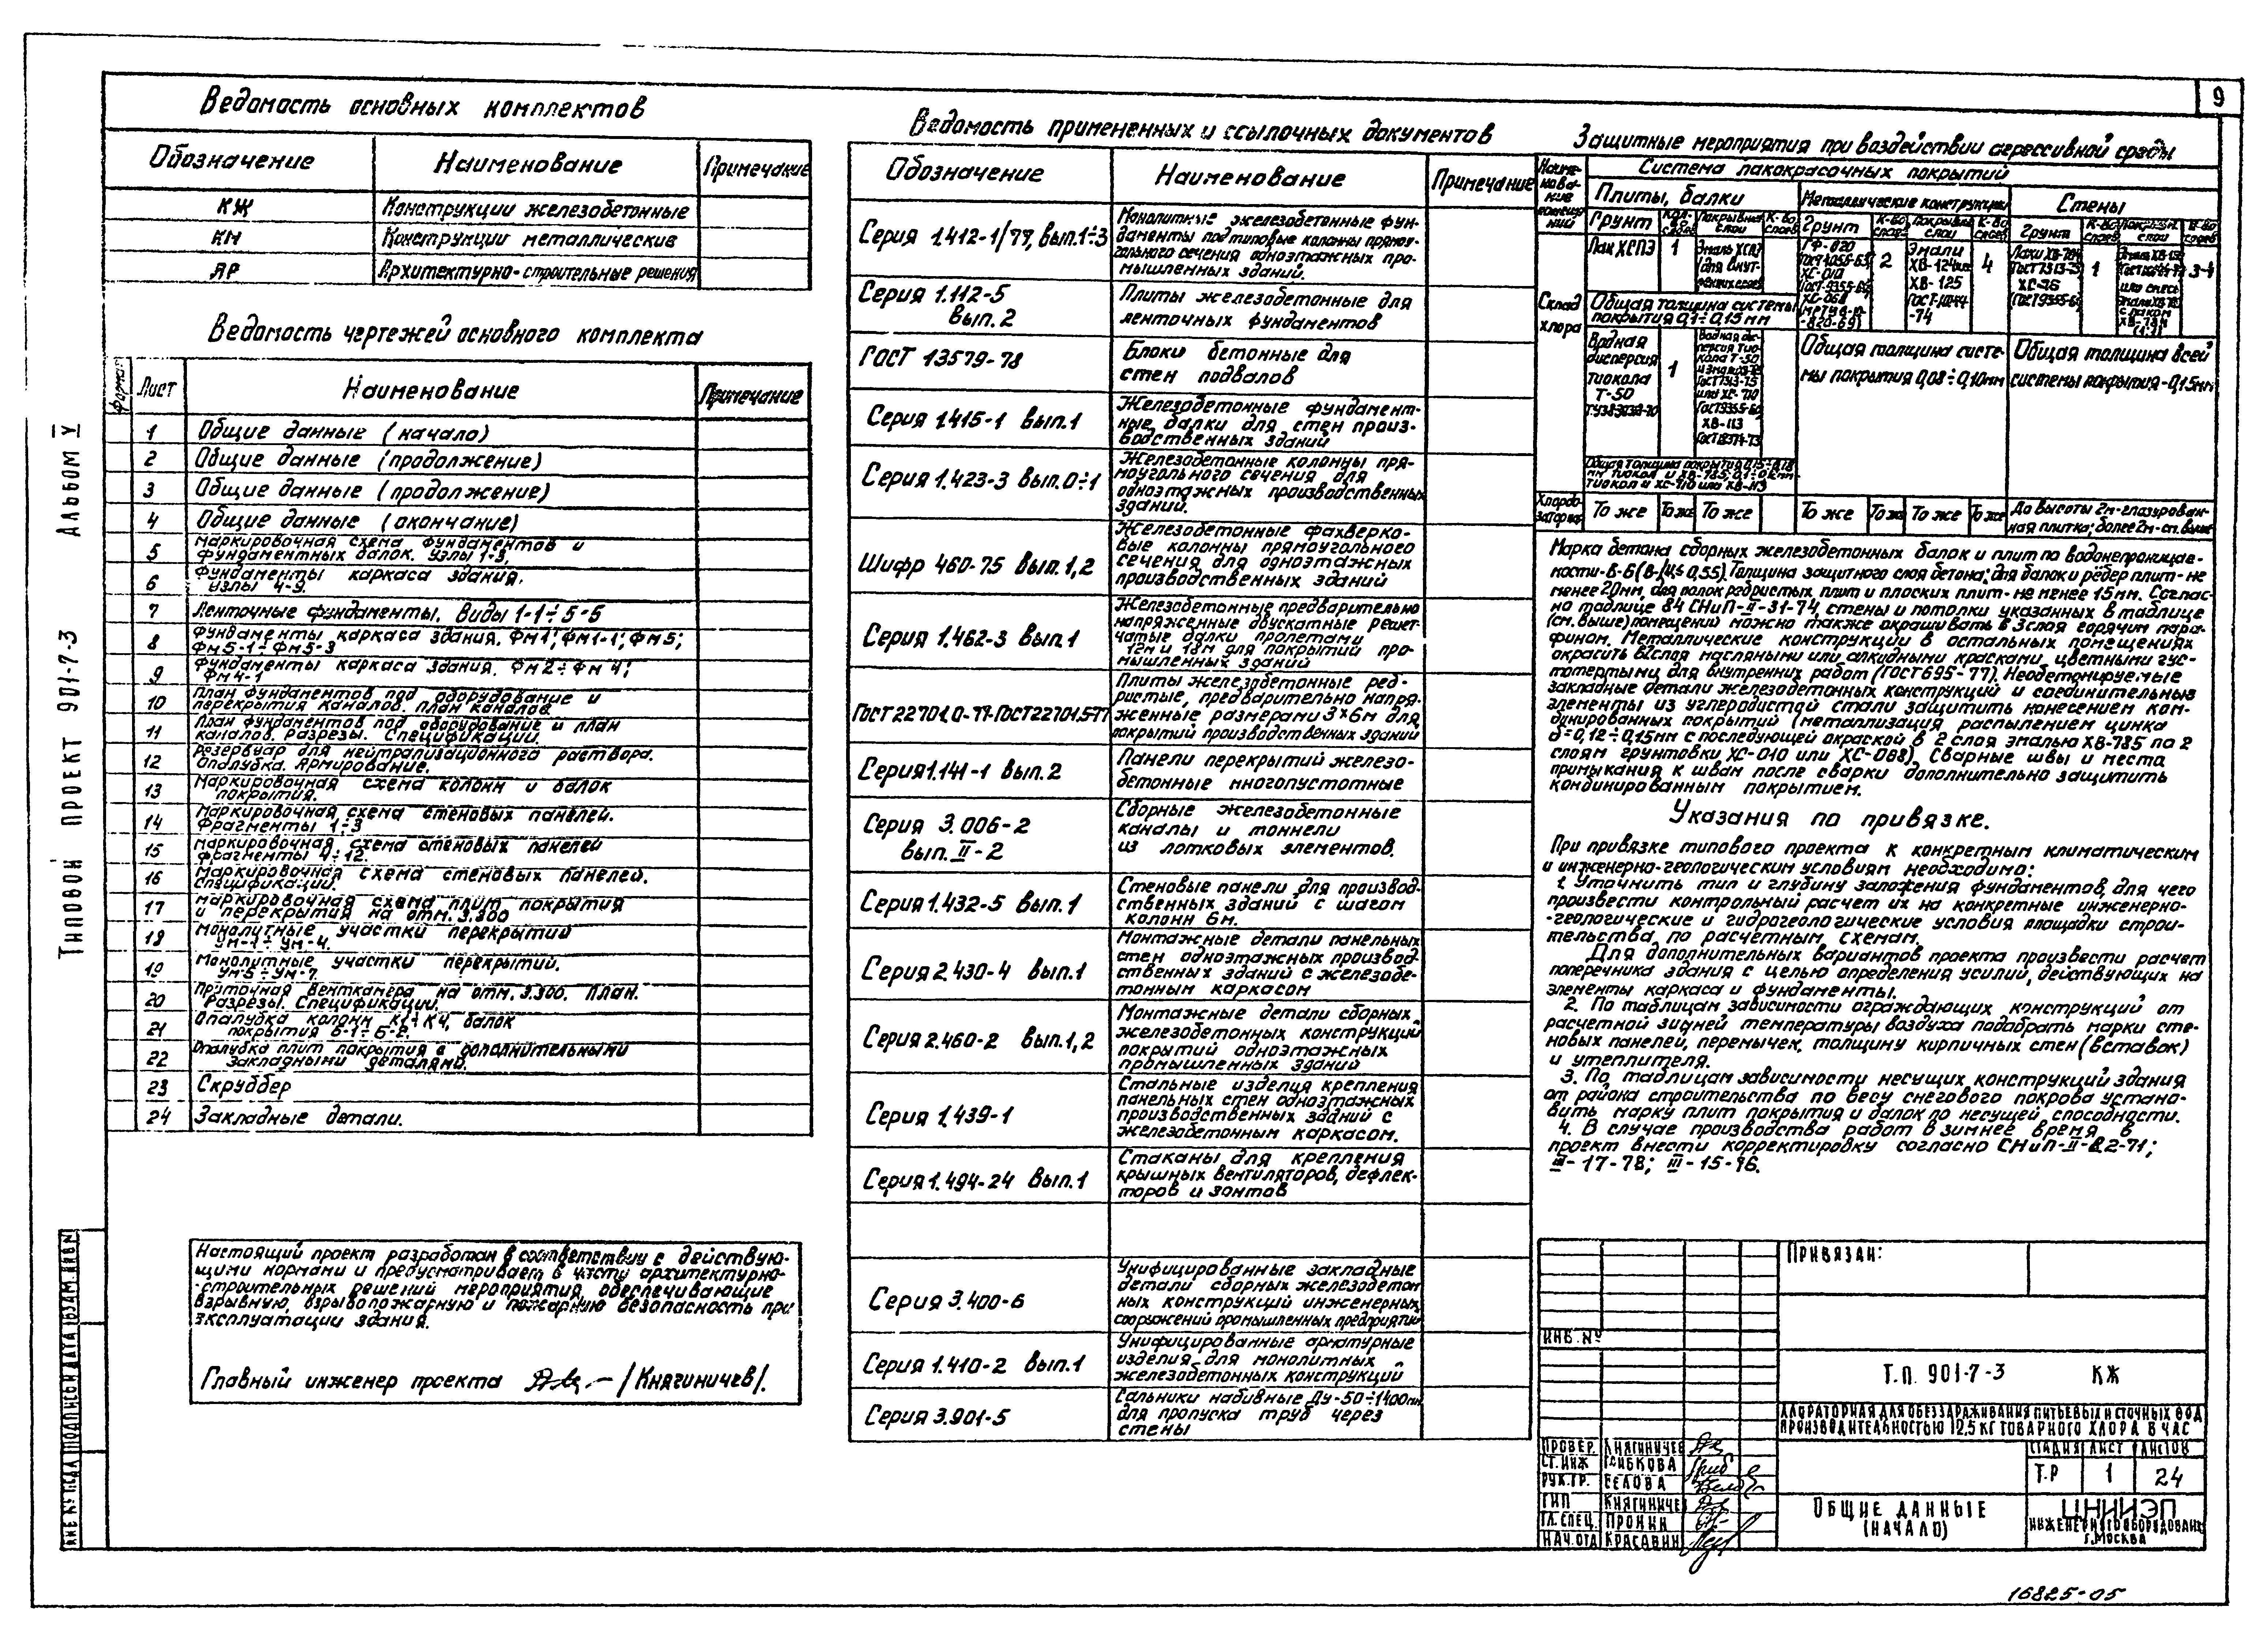 9
Ведомость основных комплектов
Обозначение Наименование Примечание
КЖ Конструкции железобетонные
КМ Конструкции металлические
АР Архитектурно-строительные решения
Ведомость чертежей основного комплекта
Формат Лист Наименование Примечание
1 Общие данные (начало)
2 Общие данные (продолжение)
3 Общие данные (продолжение)
4 Общие данные (окончание)
5 Маркировочная схема фундаментов и
фундаментных балок. Узлы 1-3.
6 Фундаменты каркаса здания.
Узлы 4-9.
7 Ленточные фундаменты. Виды 1-1÷5-5
8 Фундаменты каркаса здания. Фм1; Фм1-1; Фм5;
Фм5-1÷Фм5-3
9 Фундаменты каркаса здания. Фм2÷Фм4;
Фм4-1
10 План фундаментов под оборудование и
перекрытия каналов. План каналов
11 План фундаментов под оборудование и план
каналов. Разрезы. Спецификации.
12 Резервуар для нейтрализационного раствора.
Опалубка. Армирование.
13 Маркировочная схема колонн и балок
покрытия.
14 Маркировочная схема стеновых панелей.
Фрагменты 1÷3
15 Маркировочная схема стеновых панелей
фрагменты 4÷12.
16 Маркировочная схема стеновых панелей.
Спецификации.
17 Маркировочная схема плит покрытия
и перекрытия на отм. 3.300
18 Монолитные участки перекрытий
Ум-1÷Ум-4.
19 Монолитные участки перекрытий.
Ум-5÷Ум-7.
20 Приточная венткамера на отм. 3.300. План.
Разрезы. Спецификации.
21 Опалубка колонн К1÷К4, балок
покрытия Б-1÷Б-2.
22 Опалубка плит покрытия с дополнительными
закладными деталями.
23 Скруббер
24 Закладные детали.
Настоящий проект разработан в соответствии с действую-
щими нормами и предусматривает в части архитектурно-
-строительных решений мероприятия, обеспечивающие
взрывную, взрывопожарную и пожарную безопасность при
эксплуатации здания.
Главный инженер проекта /Княгиничев/.
Ведомость примененных и ссылочных документов
Обозначение Наименование Примечание
Серия 1.412-1/77, вып.1÷3 Монолитные железобетонные фун-
даменты под типовые колонны прямоу-
гольного сечения одноэтажных про-
мышленных зданий.
Серия 1.112-5 Плиты железобетонные для
вып. 2 ленточных фундаментов
ГОСТ 13579-78 Блоки бетонные для
стен подвалов
Серия 1.415-1 вып.1 Железобетонные фундамент-
ные балки для стен произ-
водственных зданий
Серия 1.423-3 вып. 0÷1 Железобетонные колонны пря-
моугольного сечения для
одноэтажных производственных
зданий.
Шифр 460-75 вып.1,2 Железобетонные фахверко-
вые колонны прямоугольного
сечения для одноэтажных
производственных зданий
Серия 1.462-3 вып.1 Железобетонные предварительно
напряженные двускатные решет-
чатые балки пролетами
12м и 18м для покрытий про-
мышленных зданий
ГОСТ 22701.0-77-ГОСТ 22701.5-77 Плиты железобетонные реб-
ристые, предварительно напря-
женные размерами 3×6м для
покрытий производственных зданий
Серия 1.141-1 вып. 2 Панели перекрытий железо-
бетонные многопустотные
Серия 3.006-2 Сборные железобетонные
вып. II-2 каналы и тоннели
из лотковых элементов.
Серия 1.432-5 вып. 1 Стеновые панели для производ-
ственных зданий с шагом
колонн 6м.
Серия 2.430-4 вып.1 Монтажные детали панельных
стен одноэтажных производ-
ственных зданий с железобе-
тонным каркасом
Серия 2.460-2 вып.1,2 Монтажные детали сборных
железобетонных конструкций
покрытий одноэтажных
промышленных зданий
Серия 1.439-1 Стальные изделия крепления
панельных стен одноэтажных
производственных зданий с
железобетонным каркасом.
Серия 1.494-24 вып.1 Стаканы для крепления
крышных вентиляторов, дефлек-
торов и зонтов
Серия 3.400-6 Унифицированные закладные
детали сборных железобетон
ных конструкций инженерных
сооружений промышленных предприятий
Серия 1.410-2 вып.1 Унифицированные арматурные
изделия для монолитных
железобетонных конструкций
Серия 3.901-5 Сальники набивные Ду-50÷1400мм
для пропуска труб через
стены
Защитные мероприятия при воздействии агрессивной среды
Наиме-
нова-
ние
помеще-
ний
Система лакокрасочных покрытий
Плиты, балки Металлические конструкции Стены
Грунт Кол-во слоев Покрывные слои К-во слоев Грунт К-во слоев Покрывные слои К-во слоев Грунт К-во слоев Покрывные слои К-во слоев
Склад
хлора
Лак ХСПЭ 1 Эмаль ХСПЭ
Общая толщина системы
покрытия 0,1÷0,15мм
Водная
дисперсия
тиокола
Т-50
1
ХВ-113
ГФ-020
ХС-010
ХС-068
2
Эмали
ХВ-124 или
ХВ-125
ГОСТ-10144
-74
4
1
3-4
Общая толщина систе-
мы покрытия 0,08÷0,10мм
Общая толщина всей
системы покрытия-0,15мм
Хлордо-
заторная
То же То же То же То же То же То же То же До высоты 2м-глазирован-
ная плитка; более 2м-см. выше
Марка бетона сборных железобетонных балок и плит по водонепроницае-
мости-В-6 (В/Ц≤0,55). Толщина защитного слоя бетона: для балок и рёбер плит-не
менее 20мм, для полок ребристых плит и плоских плит-не менее 15мм. Соглас-
но таблице 84 СНиП-II-31-74, стены и потолки указанных в таблице
(см. выше) помещений можно также окрашивать в 3 слоя горячим пара-
фином. Металлические конструкции в остальных помещениях
окрасить в 2 слоя масляными или алкидными красками, цветными гус-
тотертыми для внутренних работ (ГОСТ 695-77). Необетонируемые
закладные детали железобетонных конструкций и соединительные
элементы из углеродистой стали защитить нанесением ком-
бинированных покрытий (металлизация распылением цинка
δ=0,12÷0,15мм с последующей окраской в 2 слоя эмалью ХВ-785 по 2
слоям грунтовки ХС-010 или ХС-068). Сварные швы и места
примыкания к швам после сварки дополнительно защитить
комбинированным покрытием.
Указания по привязке.
При привязке типового проекта к конкретным климатическим
и инженерно-геологическим условиям необходимо:
1. Уточнить тип и глубину заложения фундаментов, для чего
произвести контрольный расчет их на конкретные инженерно-
-геологические и гидрогеологические условия площадки строи-
тельства, по расчетным схемам.
Для дополнительных вариантов проекта произвести расчет
поперечника здания с целью определения усилий, действующих на
элементы каркаса и фундаменты.
2. По таблицам зависимости ограждающих конструкций от
расчетной зимней температуры воздуха подобрать марки сте-
новых панелей, перемычек, толщину кирпичных стен (вставок)
и утеплителя.
3. По таблицам зависимости несущих конструкций здания
от района строительства по весу снегового покрова устано-
вить марку плит покрытия и балок по несущей способности.
4. В случае производства работ в зимнее время в
проект внести корректировку согласно СНиП-II-В.2-71;
III-17-78; III-15-76.
Привязан:
Инв. №
Т.п. 901-7-3 КЖ
Хлораторная для обеззараживания питьевых и сточных вод
производительностью 12,5 кг товарного хлора в час
Стадия Лист Листов
Т.Р 1 24
Общие данные
(начало)
ЦНИИЭП
инженерного оборудования
г. Москва
Провер. Княгиничев
Ст. инж Грибкова
Рук. гр. Белова
ГИП Княгиничев
Гл. спец. Пронин
Нач. отд Красавин
16825-05
Типовой проект 901-7-3 Альбом V
Инв. № подл Подпись и дата Взам. инв №